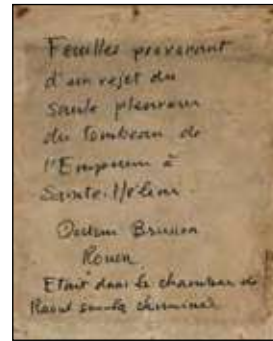 Feuilles provenant
d'un rejet du
saule pleureur
du tombeau de
l'Empereur à
Sainte-Hélène.
Docteur
Rouen
Etait dans la chambre de
Raoul sur la cheminée